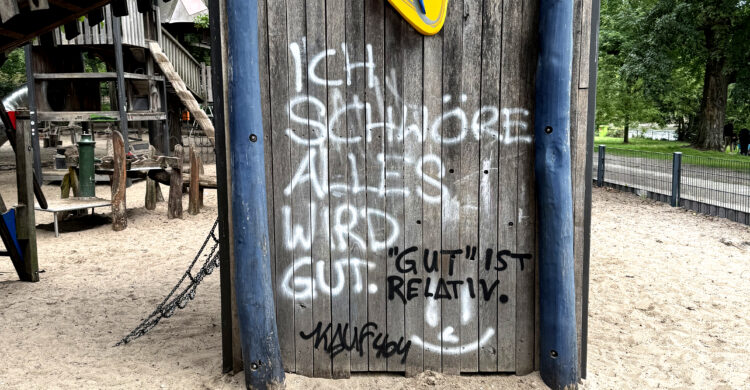 ICH
SCHWÖRE
ALLES
WIRD
GUT. "GUT" IST
RELATIV.
KAUF404